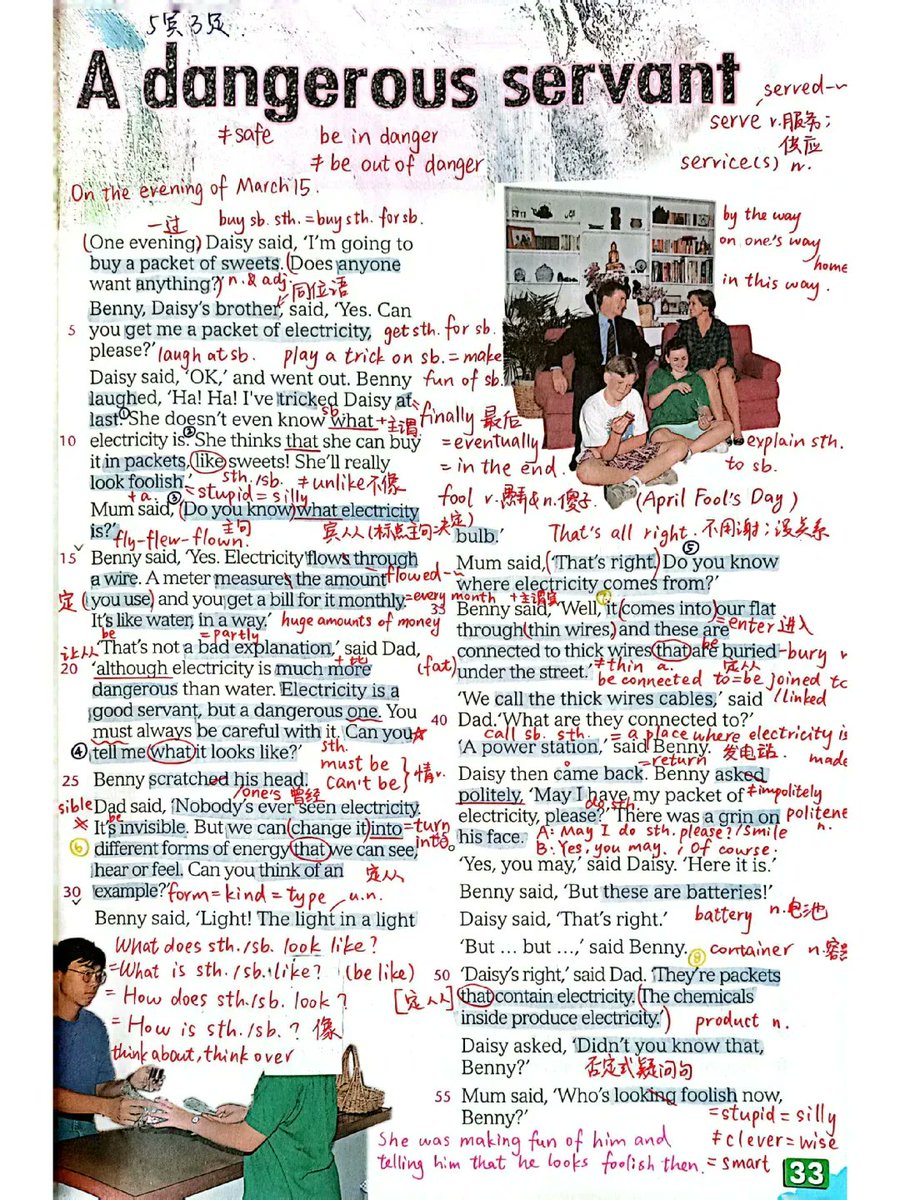 5宾3定
A dangerous servant
served~
≠safe
be in danger
serve v.服务;
供应
≠ be out of danger
service(s) n.
On the evening of March 15.
一过
buy sb. sth. = buy sth. for sb.
by the way
on one's way
home
in this way.
(One evening) Daisy said, ‘I'm going to
buy a packet of sweets. (Does anyone
want anything?’)
n. & adj.
同位语
Benny, Daisy's brother, said, ‘Yes. Can
5 you get me a packet of electricity,
get sth. for sb.
please?’
laugh at sb.
play a trick on sb. = make
fun of sb.
Daisy said, ‘OK,’ and went out. Benny
laughed, ‘Ha! Ha! I've tricked Daisy at
last. ① She doesn't even know what
sb
+主谓
finally 最后
10 electricity is. ② She thinks that she can buy
= eventually
it in packets, like sweets! She'll really
= in the end.
look foolish.’
sth./sb.
≠unlike不像
+a.
= stupid = silly
fool v.愚弄&n.傻子
(April Fool's Day)
explain sth.
to sb.
Mum said, ③ (Do you know) what electricity
is?’
主句
宾从(标点主句决定)
fly-flew-flown.
15 Benny said, ‘Yes. Electricity flows through
a wire. A meter measures the amount
flowed~
定 (you use) and you get a bill for it monthly.
= every month
It's like water, in a way.’
huge amounts of money
be
= partly
让从 ‘That's not a bad explanation,’ said Dad,
20 ‘although electricity is much more
+比
(fat)
dangerous than water. Electricity is a
good servant, but a dangerous one. You
must always be careful with it. Can you
④ tell me what it looks like?’
sth.
must be
can't be } 情v.
25 Benny scratched his head.
one's 曾经
sible Dad said, ‘Nobody's ever seen electricity.
be
It's invisible. But we can (change it) into
= turn
into
⑥ different forms of energy that we can see,
hear or feel. Can you think of an
定从
30 example?’
form = kind = type
u.n.
Benny said, ‘Light! The light in a light
What does sth./sb. look like?
= What is sth./sb. like? (be like)
= How does sth./sb. look?
= How is sth./sb.? 像
think about, think over
bulb.’
That's all right. 不用谢;没关系
⑤
Mum said, (‘That's right.) Do you know
where electricity comes from?’
+主谓宾
35 Benny said, ‘Well, it (comes into) our flat
= enter 进入
through (thin wires) and these are
connected to thick wires that are buried
be
-bury v
under the street.’
≠thin a.
定从
be connected to = be joined to
/linked
‘We call the thick wires cables,’ said
40 Dad. ‘What are they connected to?’
call sb. sth.
= a place where electricity is
made
‘A power station,’ said Benny.
发电站.
= return
Daisy then came back. Benny asked
politely, ‘May I have my packet of
≠impolitely
do sth.
electricity, please?’ There was a grin on
politene
n.
his face.
A: May I do sth. please? /Smile
B: Yes, you may. / Of course.
‘Yes, you may,’ said Daisy. ‘Here it is.’
Benny said, ‘But these are batteries!’
Daisy said, ‘That's right.’
battery n.电池
‘But … but …,’ said Benny.
⑧ container n.容
50 ‘Daisy's right,’ said Dad. ‘They're packets
[定从]
that contain electricity. (The chemicals
inside produce electricity.’)
product n.
Daisy asked, ‘Didn't you know that,
Benny?’
否定式疑问句
55 Mum said, ‘Who's looking foolish now,
Benny?’
= stupid = silly
≠ clever = wise
= smart
She was making fun of him and
telling him that he looks foolish then.
33